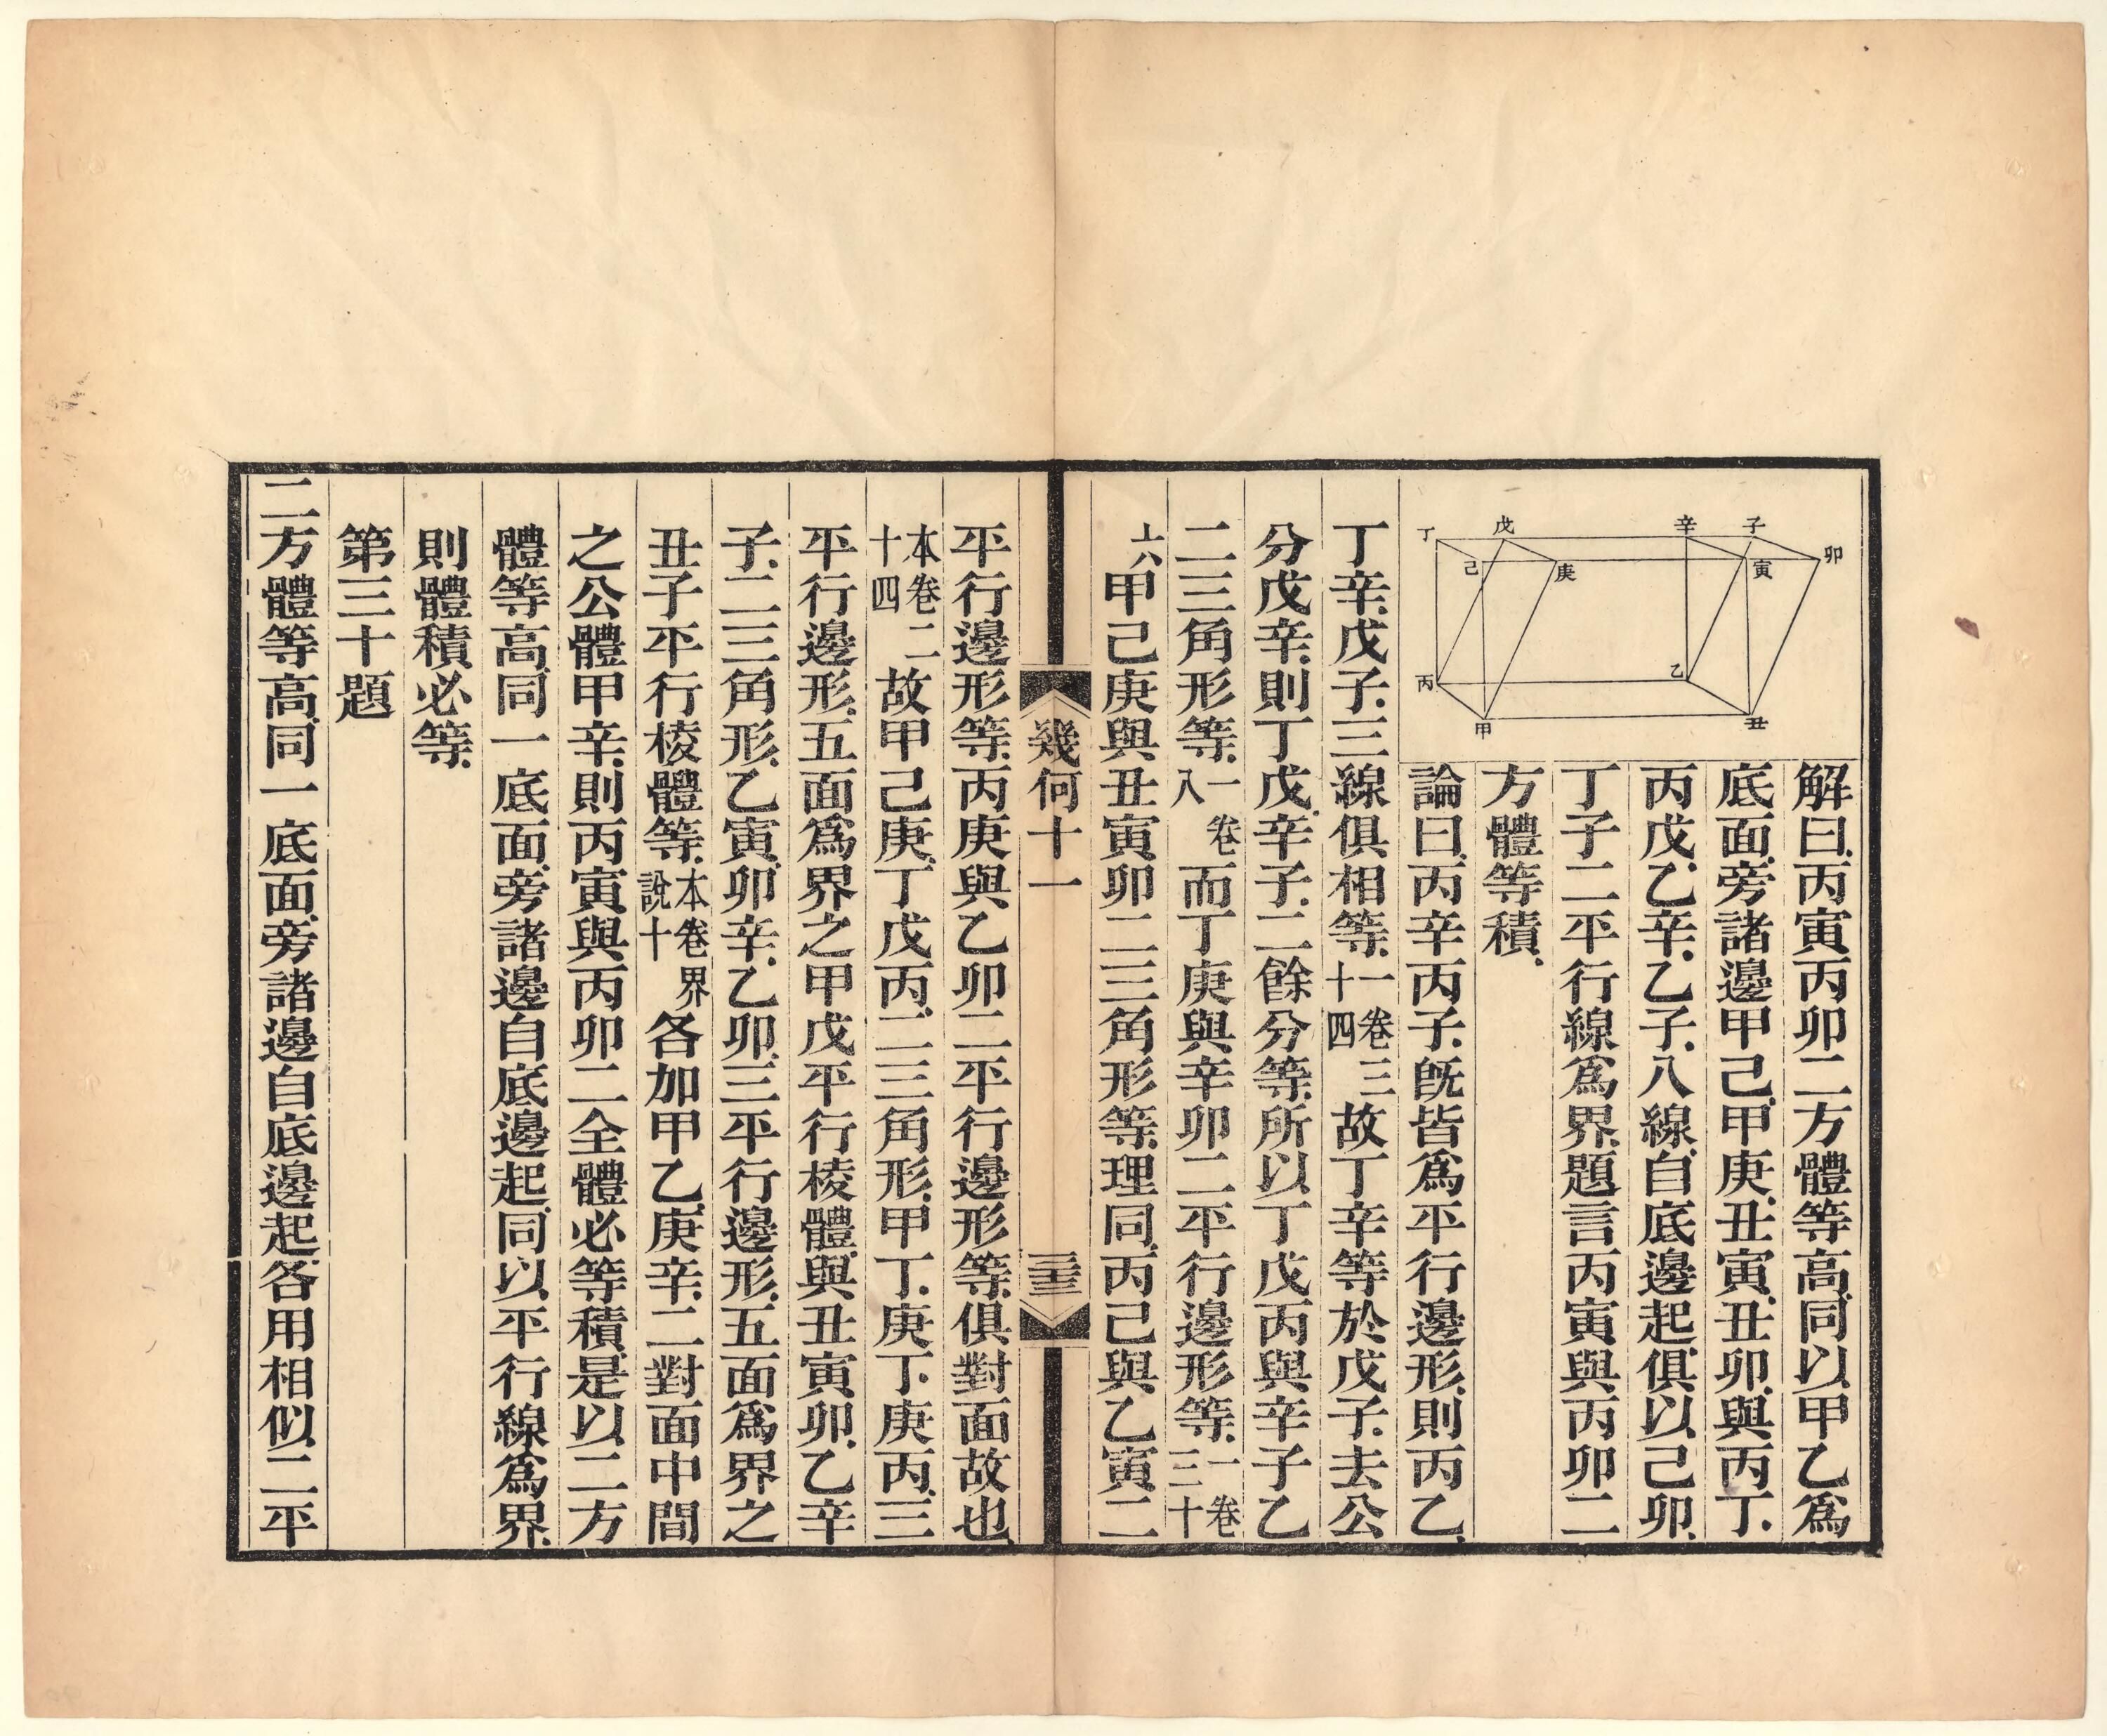 丁 戊 辛 子 卯
己 庚 寅
丙 乙
甲 丑
解曰.丙寅丙卯二方體等高.同以甲乙爲
底面.旁諸邊甲己.甲庚.丑寅.丑卯.與丙丁.
丙戊.乙辛.乙子.八線.自底邊起.俱以己卯.
丁子二平行線爲界.題言丙寅與丙卯二
方體等積.
論曰.丙辛丙子.旣皆爲平行邊形.則丙乙.
丁辛.戊子.三線俱相等.一卷三十四故丁辛等於戊子.去公
分戊辛.則丁戊.辛子.二餘分等.所以丁戊丙與辛子乙
二三角形等.一卷八而丁庚與辛卯二平行邊形等.一卷三十
六甲己庚與丑寅卯二三角形等.理同.丙己與乙寅二
幾何十一
平行邊形等.丙庚與乙卯二平行邊形等.俱對面故也.
本卷二十四故甲己庚.丁戊丙.二三角形.甲丁.庚丁.庚丙.三
平行邊形.五面爲界之甲戊平行棱體.與丑寅卯.乙辛
子.二三角形.乙寅.卯辛.乙卯.三平行邊形.五面爲界之
丑子平行棱體等.本卷界說十各加甲乙.庚辛.二對面中間
之公體甲辛.則丙寅與丙卯二全體必等積.是以二方
體等高.同一底面.旁諸邊自底邊起.同以平行線爲界.
則體積必等.
第三十題
二方體等高.同一底面.旁諸邊自底邊起.各用相似二平